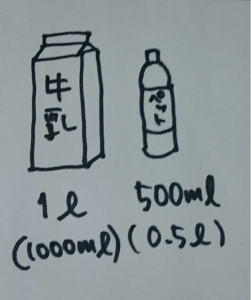 牛
乳
ペ
ッ
ト
1ℓ
(1000mℓ)
500mℓ
(0.5ℓ)